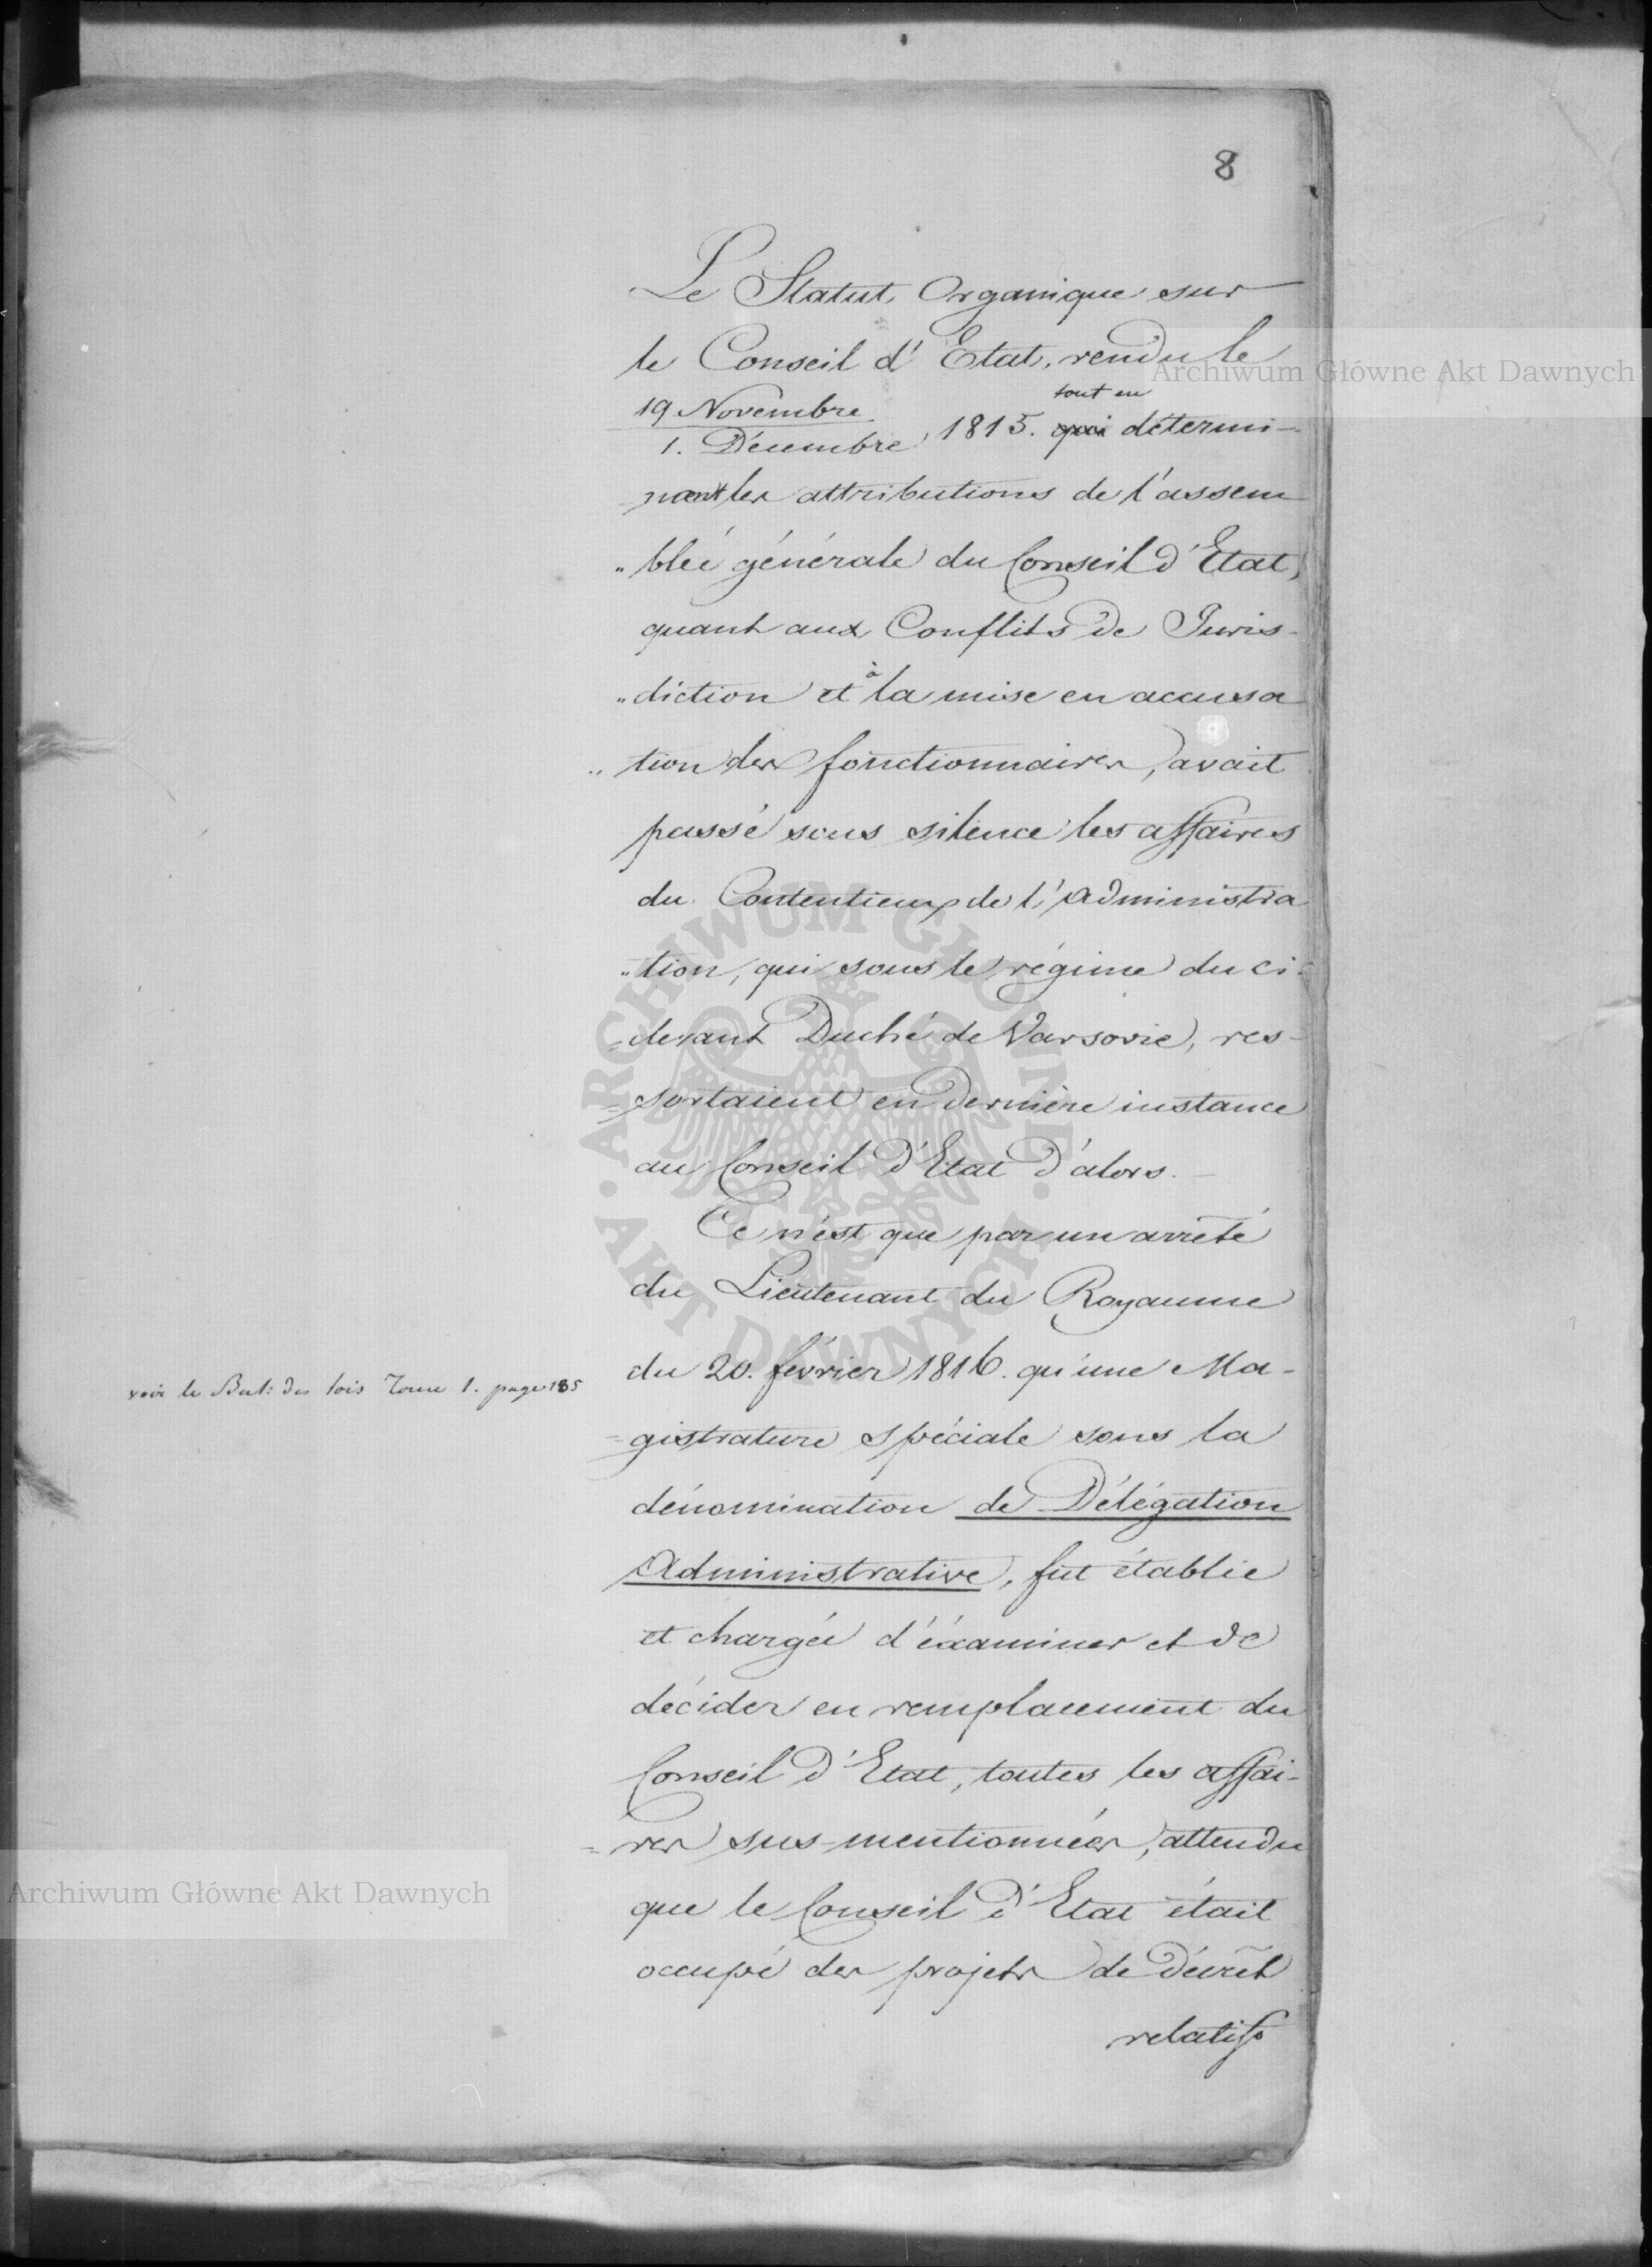 8
Le Statut Organique sur
le Conseil d'Etat, rendu le
tout en
19 Novembre
1. Décembre 1815. qui détermi-
nant les attributions de l'assem
„ blée générale du Conseil d'Etat,
quant aux Conflits de Juris-
à
„ diction et la mise en accusa
„ tion des fonctionnaires, avait
passé sous silence les affaires
du Contentieux de l'Administra
„ tion, qui sous le régime du ci-
= devant Duché de Varsovie, res-
= sortaient en dernière instance
au Conseil d'Etat d'alors.
Ce n'est que par un arrêté
du Lieutenant du Royaume
du 20. février 1816. qu'une Ma-
voir le Bul: des lois Tome 1. page 185
= gistrature spéciale sous la
dénomination de Délégation
Administrative, fut établie
et chargée d'éxaminer et de
décider en remplacement du
Conseil d'Etat, toutes les affai-
= res sus-mentionnées, attendu
que le Conseil d'Etat était
occupé des projets de Décrêt
relatifs
Archiwum Główne Akt Dawnych
ARCHIWUM GŁÓWNE · AKT DAWNYCH ·
Archiwum Główne Akt Dawnych